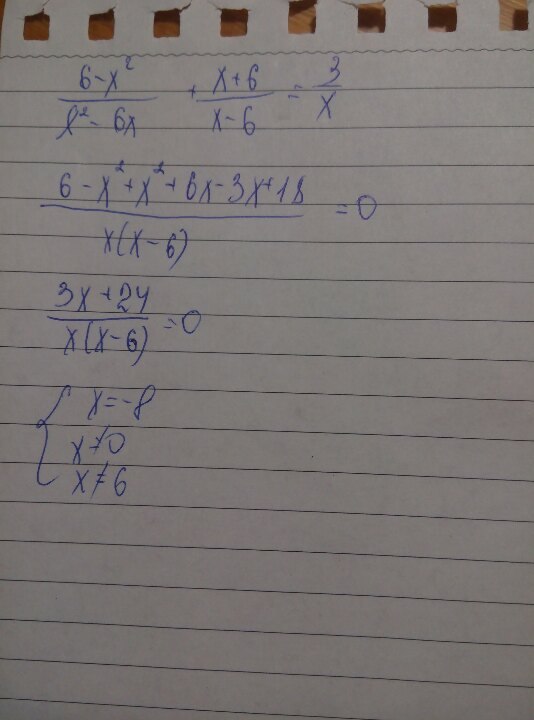 (6-x²)/(x²-6x) + (x+6)/(x-6) = 3/x
(6-x²+x²+6x-3x+18)/(x(x-6)) = 0
(3x+24)/(x(x-6)) = 0
{ x=-8
x≠0
x≠6